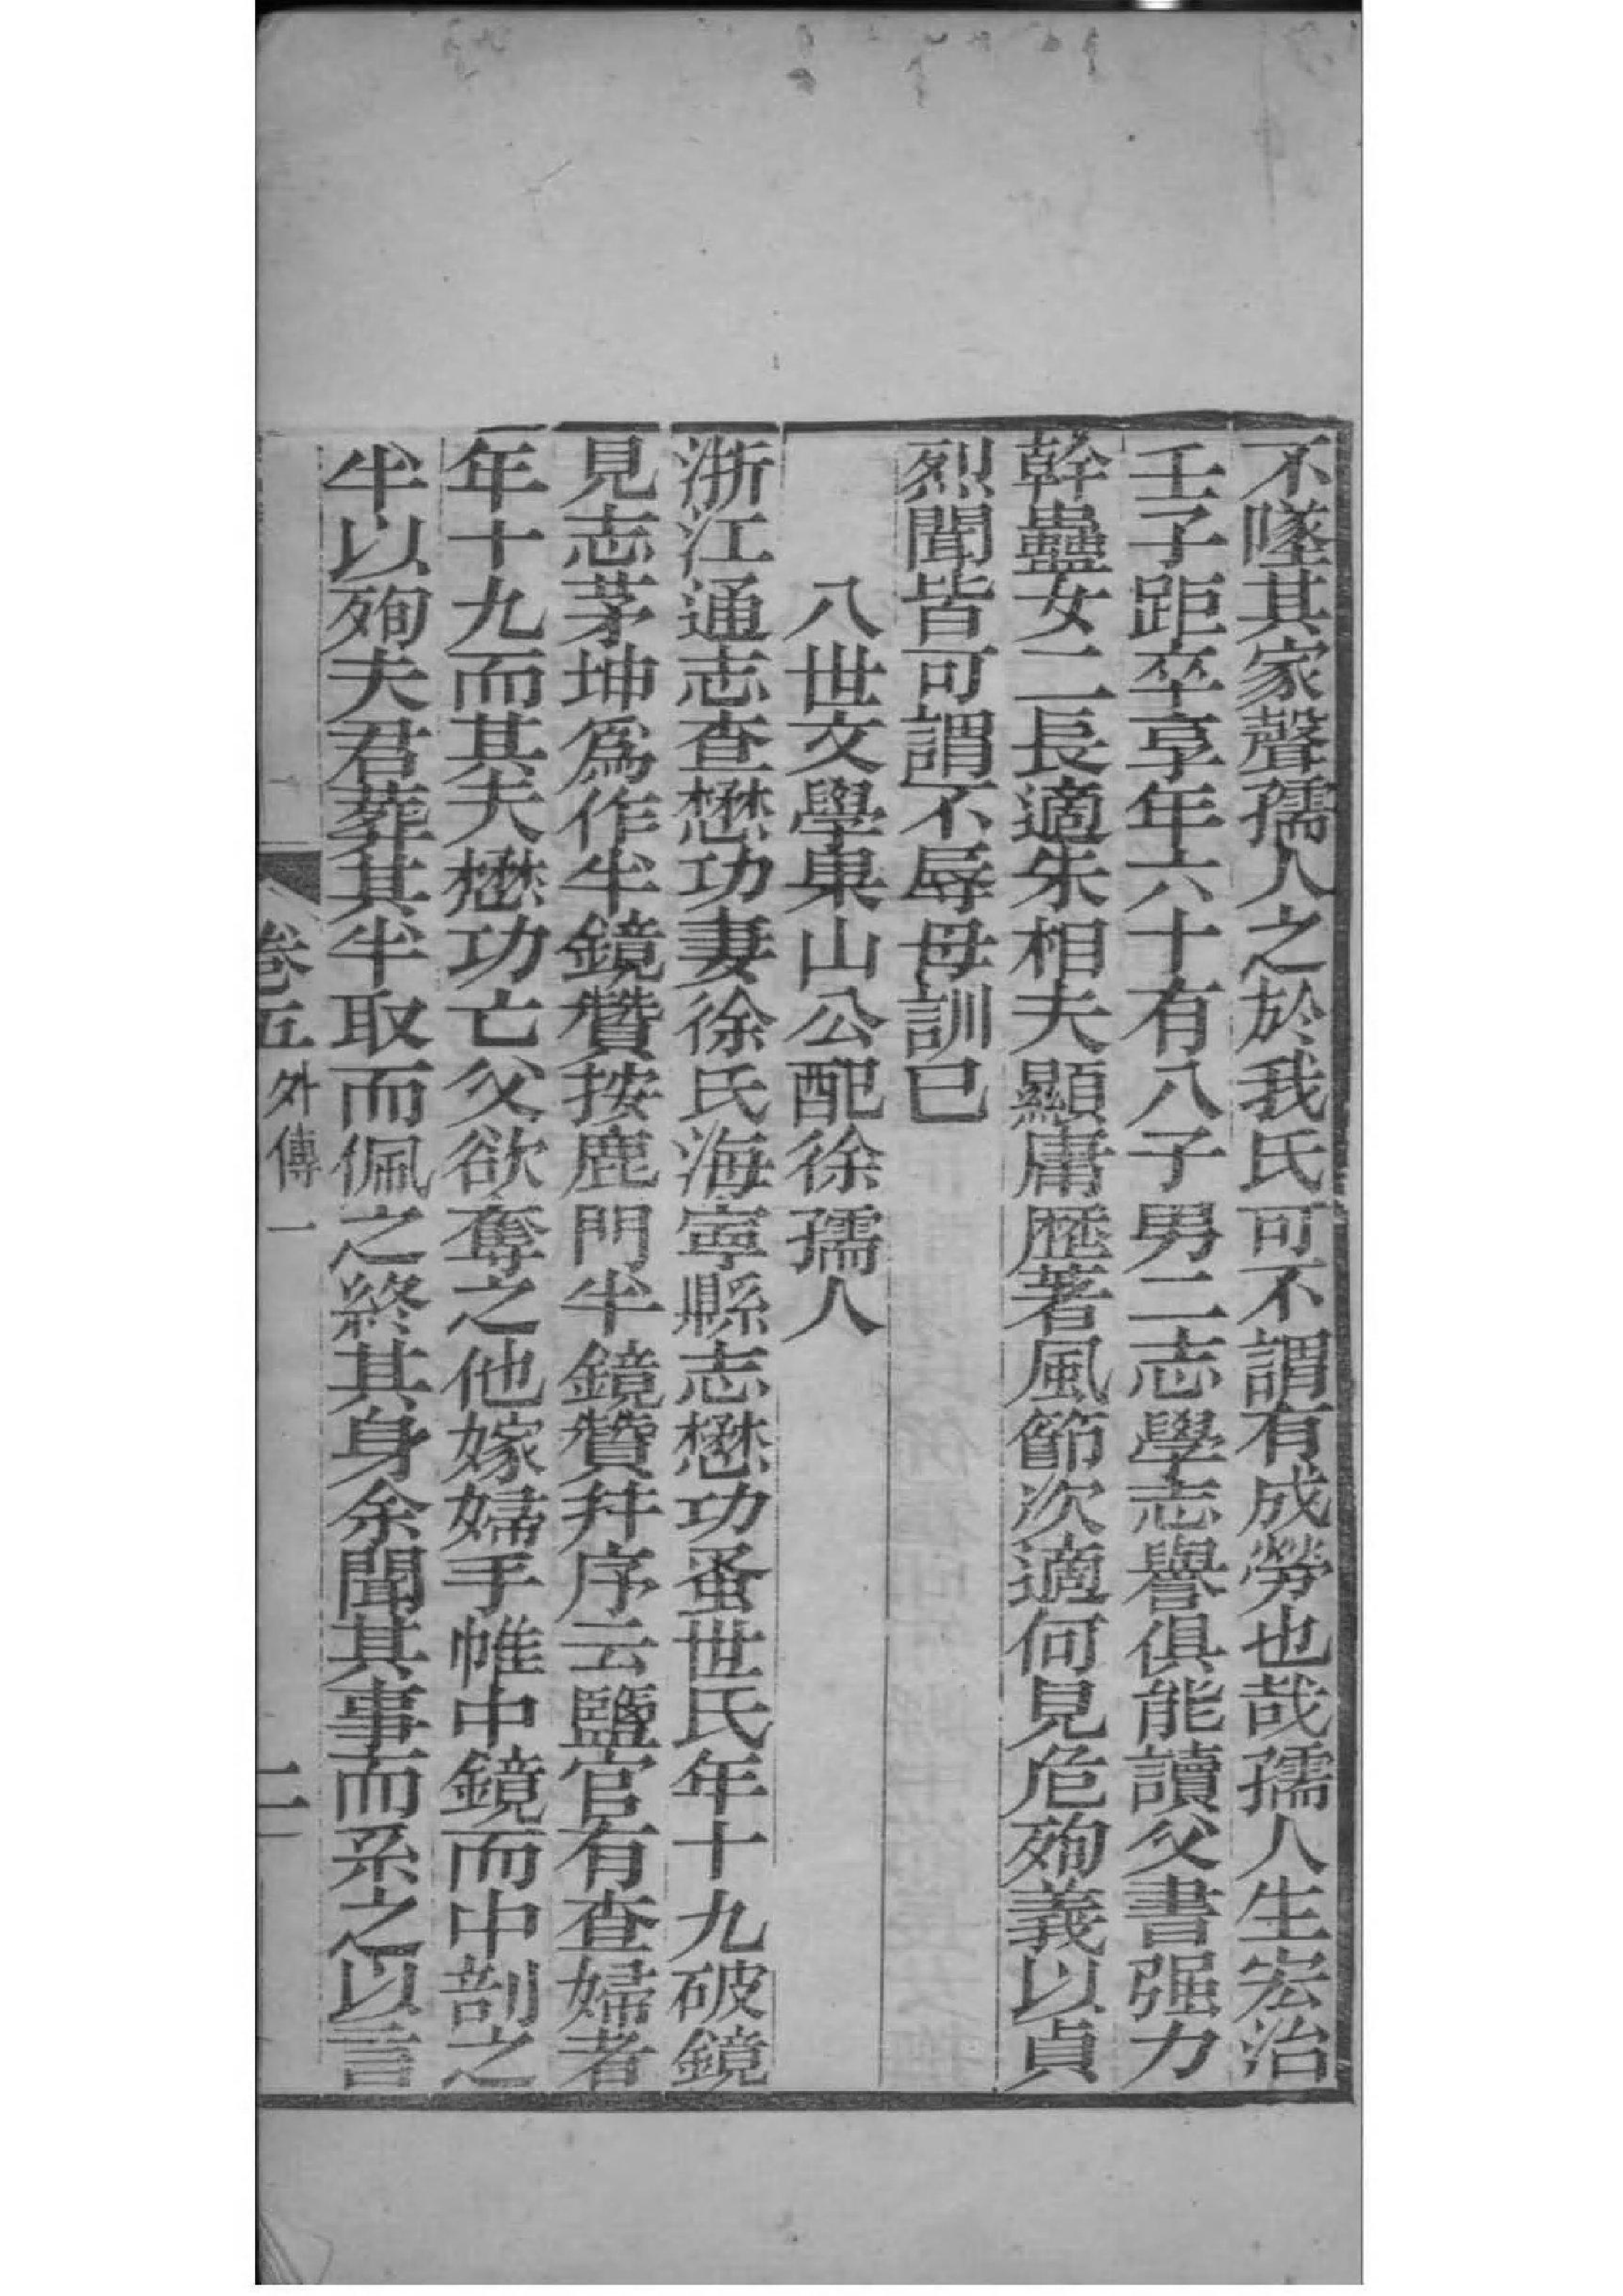 不墜其家聲孺人之於我氏可不謂有成勞也哉孺人生宏治
壬子距卒享年六十有八子男二志學志譽俱能讀父書强力
幹蠱女二長適朱相夫顯庸歷著風節次適何見危殉義以貞
烈聞皆可謂不辱母訓已
八世文學東山公配徐孺人
浙江通志查懋功妻徐氏海寧縣志懋功蚤世氏年十九破鏡
見志茅坤爲作半鏡贊按鹿門半鏡贊幷序云鹽官有查婦者
年十九而其夫懋功亡父欲奪之他嫁婦手帷中鏡而中剖之
半以殉夫君葬其半取而佩之終其身余聞其事而系之以言
卷五 外傳一 二